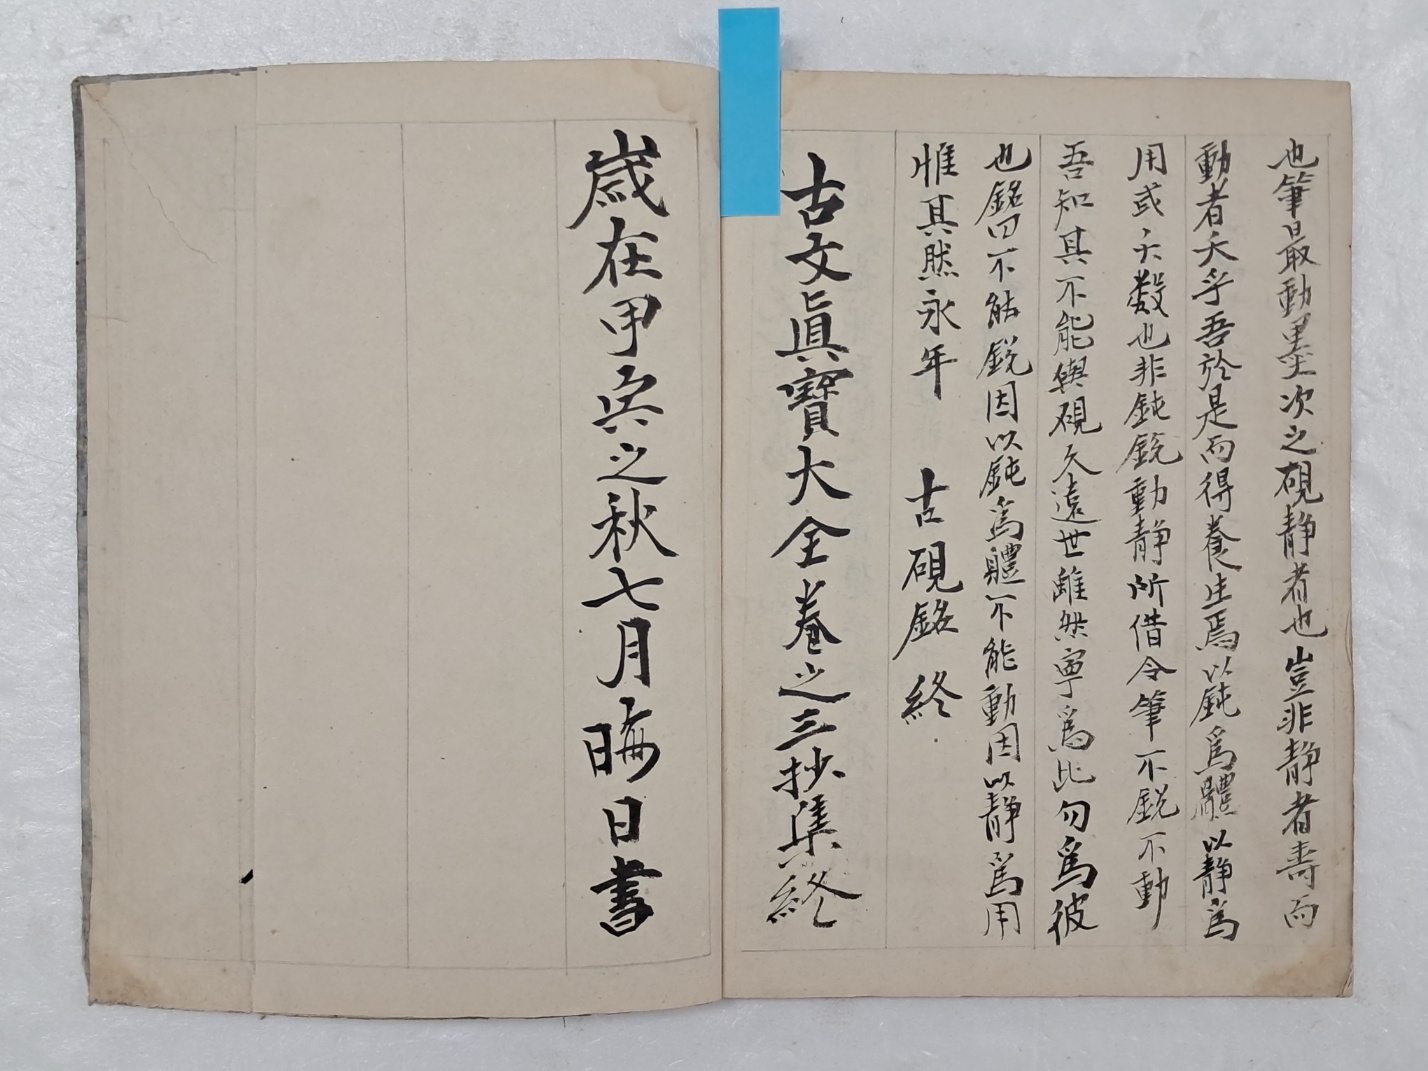 也筆最動墨次之硯靜者也豈非靜者壽而
動者夭乎吾於是而得養生焉以鈍爲體以靜爲
用或天數也非鈍銳動靜所借令筆不銳不動
吾知其不能與硯久遠世雖然寧爲此勿爲彼
也銘曰不能銳因以鈍爲體不能動因以靜爲用
惟其然永年 古硯銘終
古文眞寶大全卷之三抄集終
歲在甲寅之秋七月晦日書